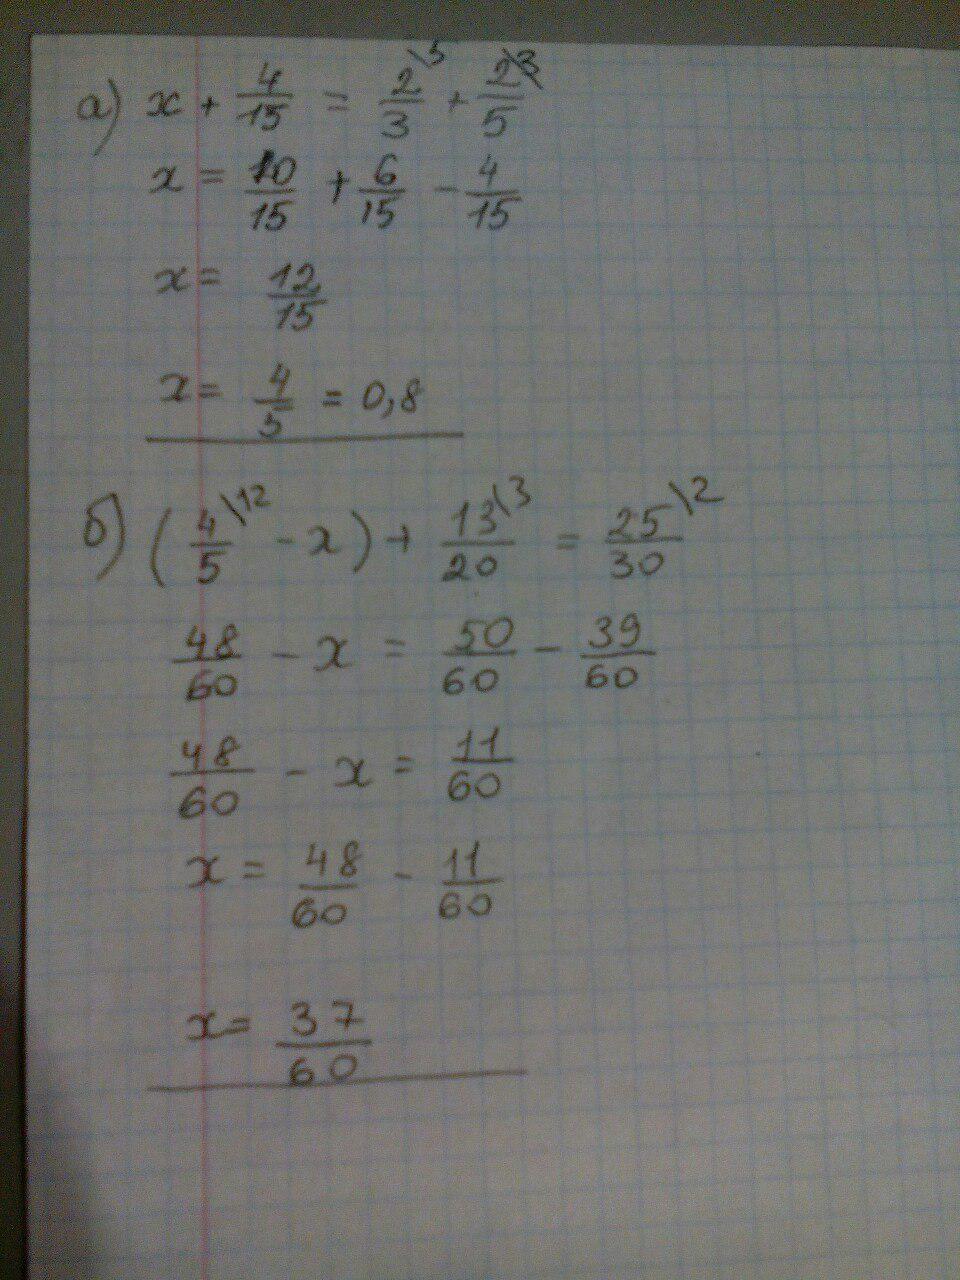 а) x + 4/15 = 2/3 \5 + 2/5 \3
x = 10/15 + 6/15 - 4/15
x = 12/15
x = 4/5 = 0,8
б) (4/5 \12 - x) + 13/20 \3 = 25/30 \2
48/60 - x = 50/60 - 39/60
48/60 - x = 11/60
x = 48/60 - 11/60
x = 37/60